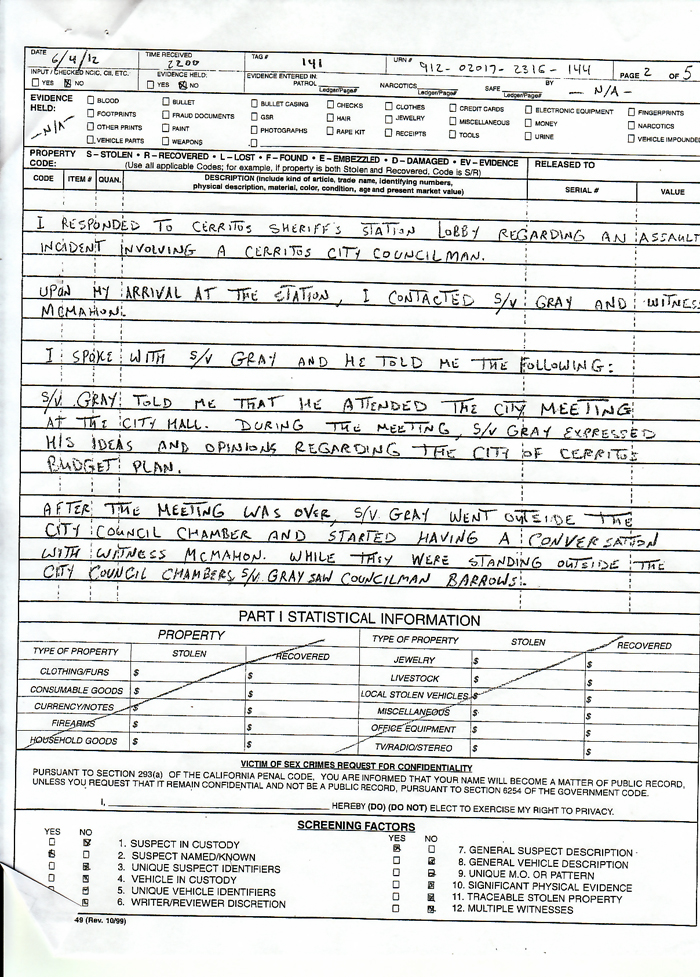 DATE 6/4/12 TIME RECEIVED 2200 TAG # 141 URN # 912-02017-2316-144 PAGE 2 OF 5
INPUT / CHECKED NCIC, CII, ETC. YES NO EVIDENCE HELD: YES NO EVIDENCE ENTERED IN: PATROL Ledger/Page# NARCOTICS Ledger/Page# SAFE Ledger/Page# BY - N/A -
EVIDENCE HELD: -N/A-
BLOOD BULLET BULLET CASING CHECKS CLOTHES CREDIT CARDS ELECTRONIC EQUIPMENT FINGERPRINTS
FOOTPRINTS FRAUD DOCUMENTS GSR HAIR JEWELRY MISCELLANEOUS MONEY NARCOTICS
OTHER PRINTS PAINT PHOTOGRAPHS RAPE KIT RECEIPTS TOOLS URINE VEHICLE IMPOUNDED
VEHICLE PARTS WEAPONS
PROPERTY CODE: S - STOLEN • R - RECOVERED • L - LOST • F - FOUND • E - EMBEZZLED • D - DAMAGED • EV - EVIDENCE
(Use all applicable Codes; for example, if property is both Stolen and Recovered, Code is S/R)
RELEASED TO
CODE ITEM # QUAN. DESCRIPTION (Include kind of article, trade name, identifying numbers,
physical description, material, color, condition, age and present market value) SERIAL # VALUE
I RESPONDED TO CERRITOS SHERIFF'S STATION LOBBY REGARDING AN ASSAULT
INCIDENT INVOLVING A CERRITOS CITY COUNCILMAN.
UPON MY ARRIVAL AT THE STATION, I CONTACTED S/V GRAY AND WITNESS
MCMAHON.
I SPOKE WITH S/V GRAY AND HE TOLD ME THE FOLLOWING:
S/V GRAY TOLD ME THAT HE ATTENDED THE CITY MEETING
AT THE CITY HALL. DURING THE MEETING, S/V GRAY EXPRESSED
HIS IDEAS AND OPINIONS REGARDING THE CITY OF CERRITOS
BUDGET PLAN.
AFTER THE MEETING WAS OVER, S/V. GRAY WENT OUTSIDE THE
CITY COUNCIL CHAMBER AND STARTED HAVING A CONVERSATION
WITH WITNESS MCMAHON. WHILE THEY WERE STANDING OUTSIDE THE
CITY COUNCIL CHAMBERS, S/V. GRAY SAW COUNCILMAN BARROWS.
PART I STATISTICAL INFORMATION
PROPERTY
TYPE OF PROPERTY STOLEN RECOVERED TYPE OF PROPERTY STOLEN RECOVERED
CLOTHING/FURS $ $ JEWELRY $ $
CONSUMABLE GOODS $ $ LIVESTOCK $ $
CURRENCY/NOTES $ $ LOCAL STOLEN VEHICLES $ $
FIREARMS $ $ MISCELLANEOUS $ $
HOUSEHOLD GOODS $ $ OFFICE EQUIPMENT $ $
TV/RADIO/STEREO $ $
VICTIM OF SEX CRIMES REQUEST FOR CONFIDENTIALITY
PURSUANT TO SECTION 293(a) OF THE CALIFORNIA PENAL CODE, YOU ARE INFORMED THAT YOUR NAME WILL BECOME A MATTER OF PUBLIC RECORD,
UNLESS YOU REQUEST THAT IT REMAIN CONFIDENTIAL AND NOT BE A PUBLIC RECORD, PURSUANT TO SECTION 6254 OF THE GOVERNMENT CODE.
I, HEREBY (DO) (DO NOT) ELECT TO EXERCISE MY RIGHT TO PRIVACY.
SCREENING FACTORS
YES NO YES NO
1. SUSPECT IN CUSTODY
2. SUSPECT NAMED/KNOWN
3. UNIQUE SUSPECT IDENTIFIERS
4. VEHICLE IN CUSTODY
5. UNIQUE VEHICLE IDENTIFIERS
6. WRITER/REVIEWER DISCRETION
7. GENERAL SUSPECT DESCRIPTION
8. GENERAL VEHICLE DESCRIPTION
9. UNIQUE M.O. OR PATTERN
10. SIGNIFICANT PHYSICAL EVIDENCE
11. TRACEABLE STOLEN PROPERTY
12. MULTIPLE WITNESSES
49 (Rev. 10/99)